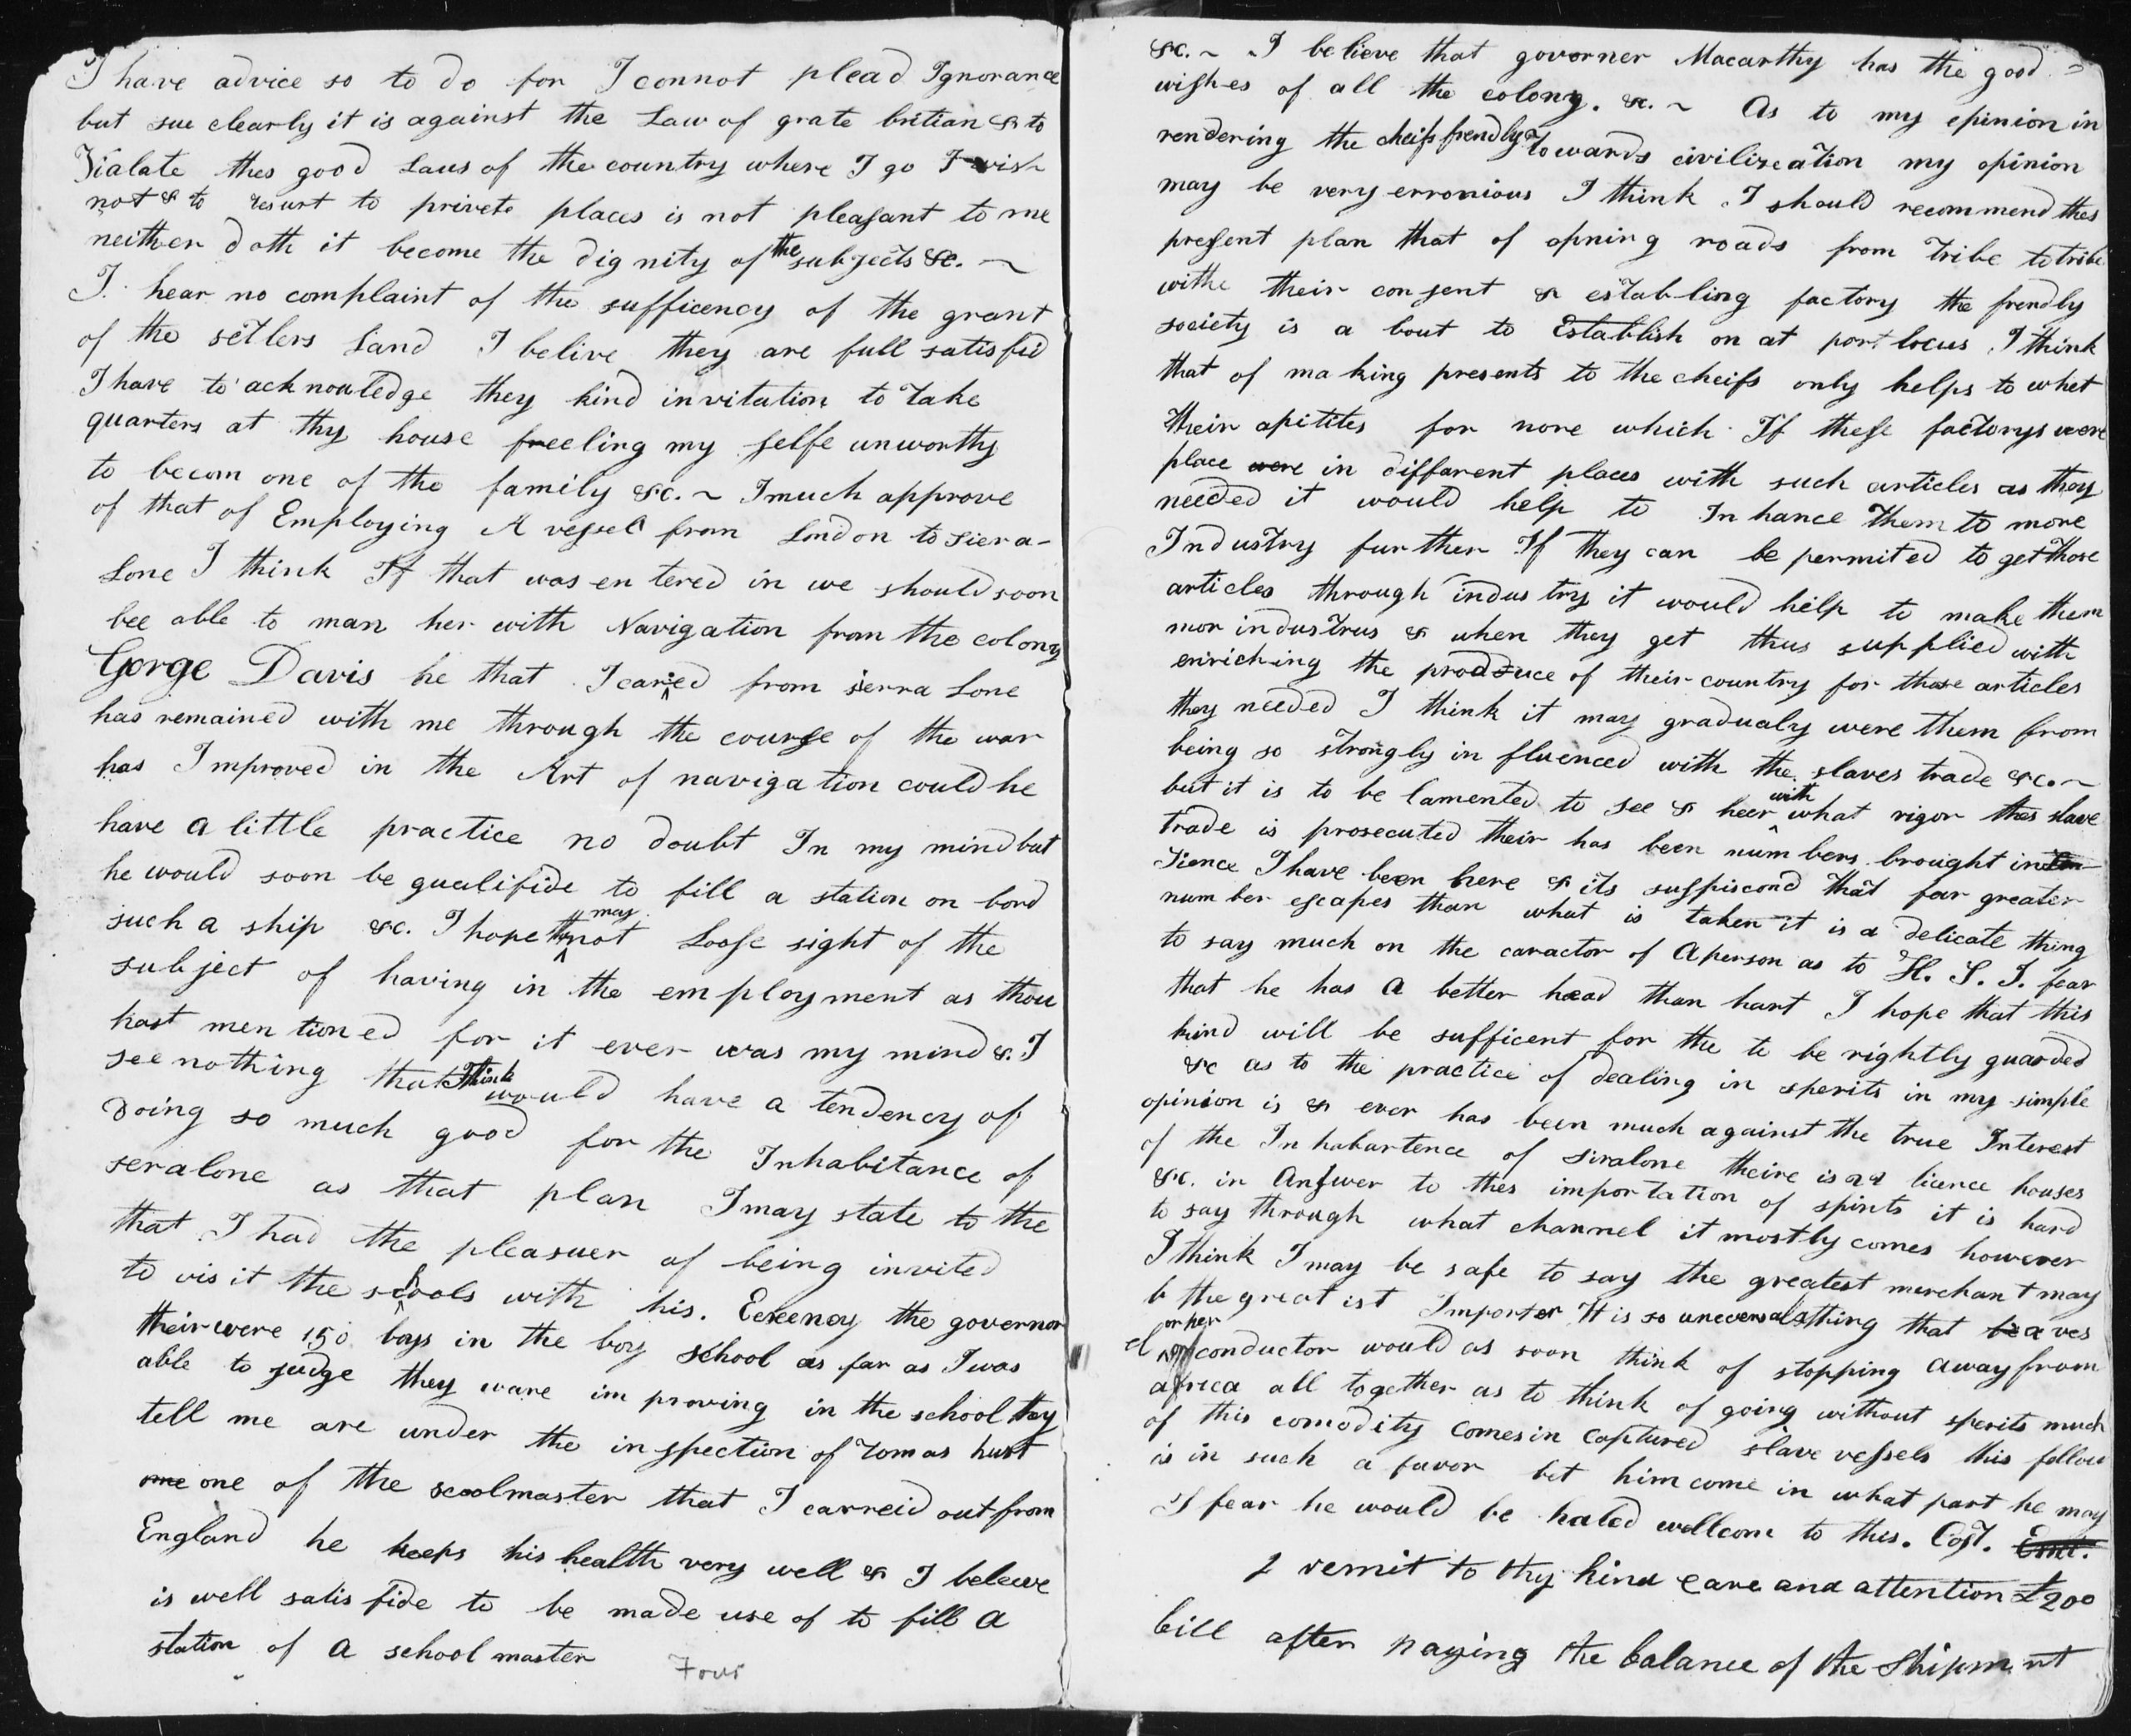 I have advice so to do for I connot plead Ignorance
but sue clearly it is against the Law of grate britian & to
Vialate thes good Laus of the country where I go I wish
not & to resurt to privete places is not pleasant to me
neither doth it become the dignity of the subjects &c. ~
I hear no complaint of the sufficency of the grant
of the setlers Land I belive they are full satisfid
I have to acknowledge they kind invitation to take
quarters at thy house freeling my selfe unworthy
to becom one of the family &c. ~ I much approve
of that of Employing A vessel from London to Siera-
Lone I think If that was entered in we should soon
bee able to man her with Navigation from the colony
Gorge Davis he that I caried from sierra Lone
has remained with me through the course of the war
has Improved in the Art of navigation could he
have a little practice no doubt In my mind but
he would soon be qualifide to fill a station on bord
such a ship &c. I hope may not Loose sight of the
subject of having in the employment as thou
hast mentioned for it ever was my mind & I
see nothing that I think would have a tendency of
Doing so much good for the Inhabitance of
seralone as that plan I may state to the
that I had the pleasuer of being invited
to visit the schools with his. Ecxeenoy the governor
their were 150 boys in the boy school as far as I was
able to judge they ware improving in the school thy
tell me are under the inspection of Tomas hurt
one one of the scoolmaster that I carreid out from
England he keeps his health very well & I beleeve
is well satisfide to be made use of to fill a
station of a school master
Four
&c. ~ I believe that governer Macarthy has the good
wishes of all the colony. &c. ~ As to my opinion in
rendering the cheifs frendly Towards civilization my opinion
may be very erronious I think I should recommend thes
present plan that of opning roads from Tribe to tribe
withe their consent & establing factory the frendly
society is a bout to Establish on at port locus I think
that of making presents to the cheifs only helps to whet
their apitites for nore which If these factorys were
place were in differant places with such articles as they
needed it would help to Inhance them to more
Industry further If they can be permited to get those
articles through industry it would help to make them
mor industrus & when they get thus supplied with
enriching the produce of their country for those articles
they needed I think it may gradualy were them from
being so strongly influenced with the slaves trade &c. ~
but it is to be lamented to see & heer with what vigor thes slave
trade is prosecuted their has been numbers brought in
Sience I have been here & its suspiscond that far greater
number escapes than what is taken it is a delicate thing
to say much on the caractor of a person as to H. S. I. fear
that he has a better head than hart I hope that this
hind will be sufficent for the to be rightly guarded
&c as to the practice of dealing in sperits in my simple
opinion is & ever has been much against the true Interest
of the Inhabartence of Siralone theire is licence houses
&c. in Answer to thes importation of spirits it is hard
to say through what channel it mostly comes however
I think I may be safe to say the greatest merchant may
b the greatist Importer It is so unecversal a thing that a ves
el or her conductor would as soon think of stopping away from
africa all together as to think of going without sperits much
of this comodity comes in captured slave vessels this fellow
is in such a favor let him come in what part he may
I fear he would be haled wellcom to thes. Cost. Esnt.
I remit to thy kind care and attention £200
bill after paying the balance of the Shipment